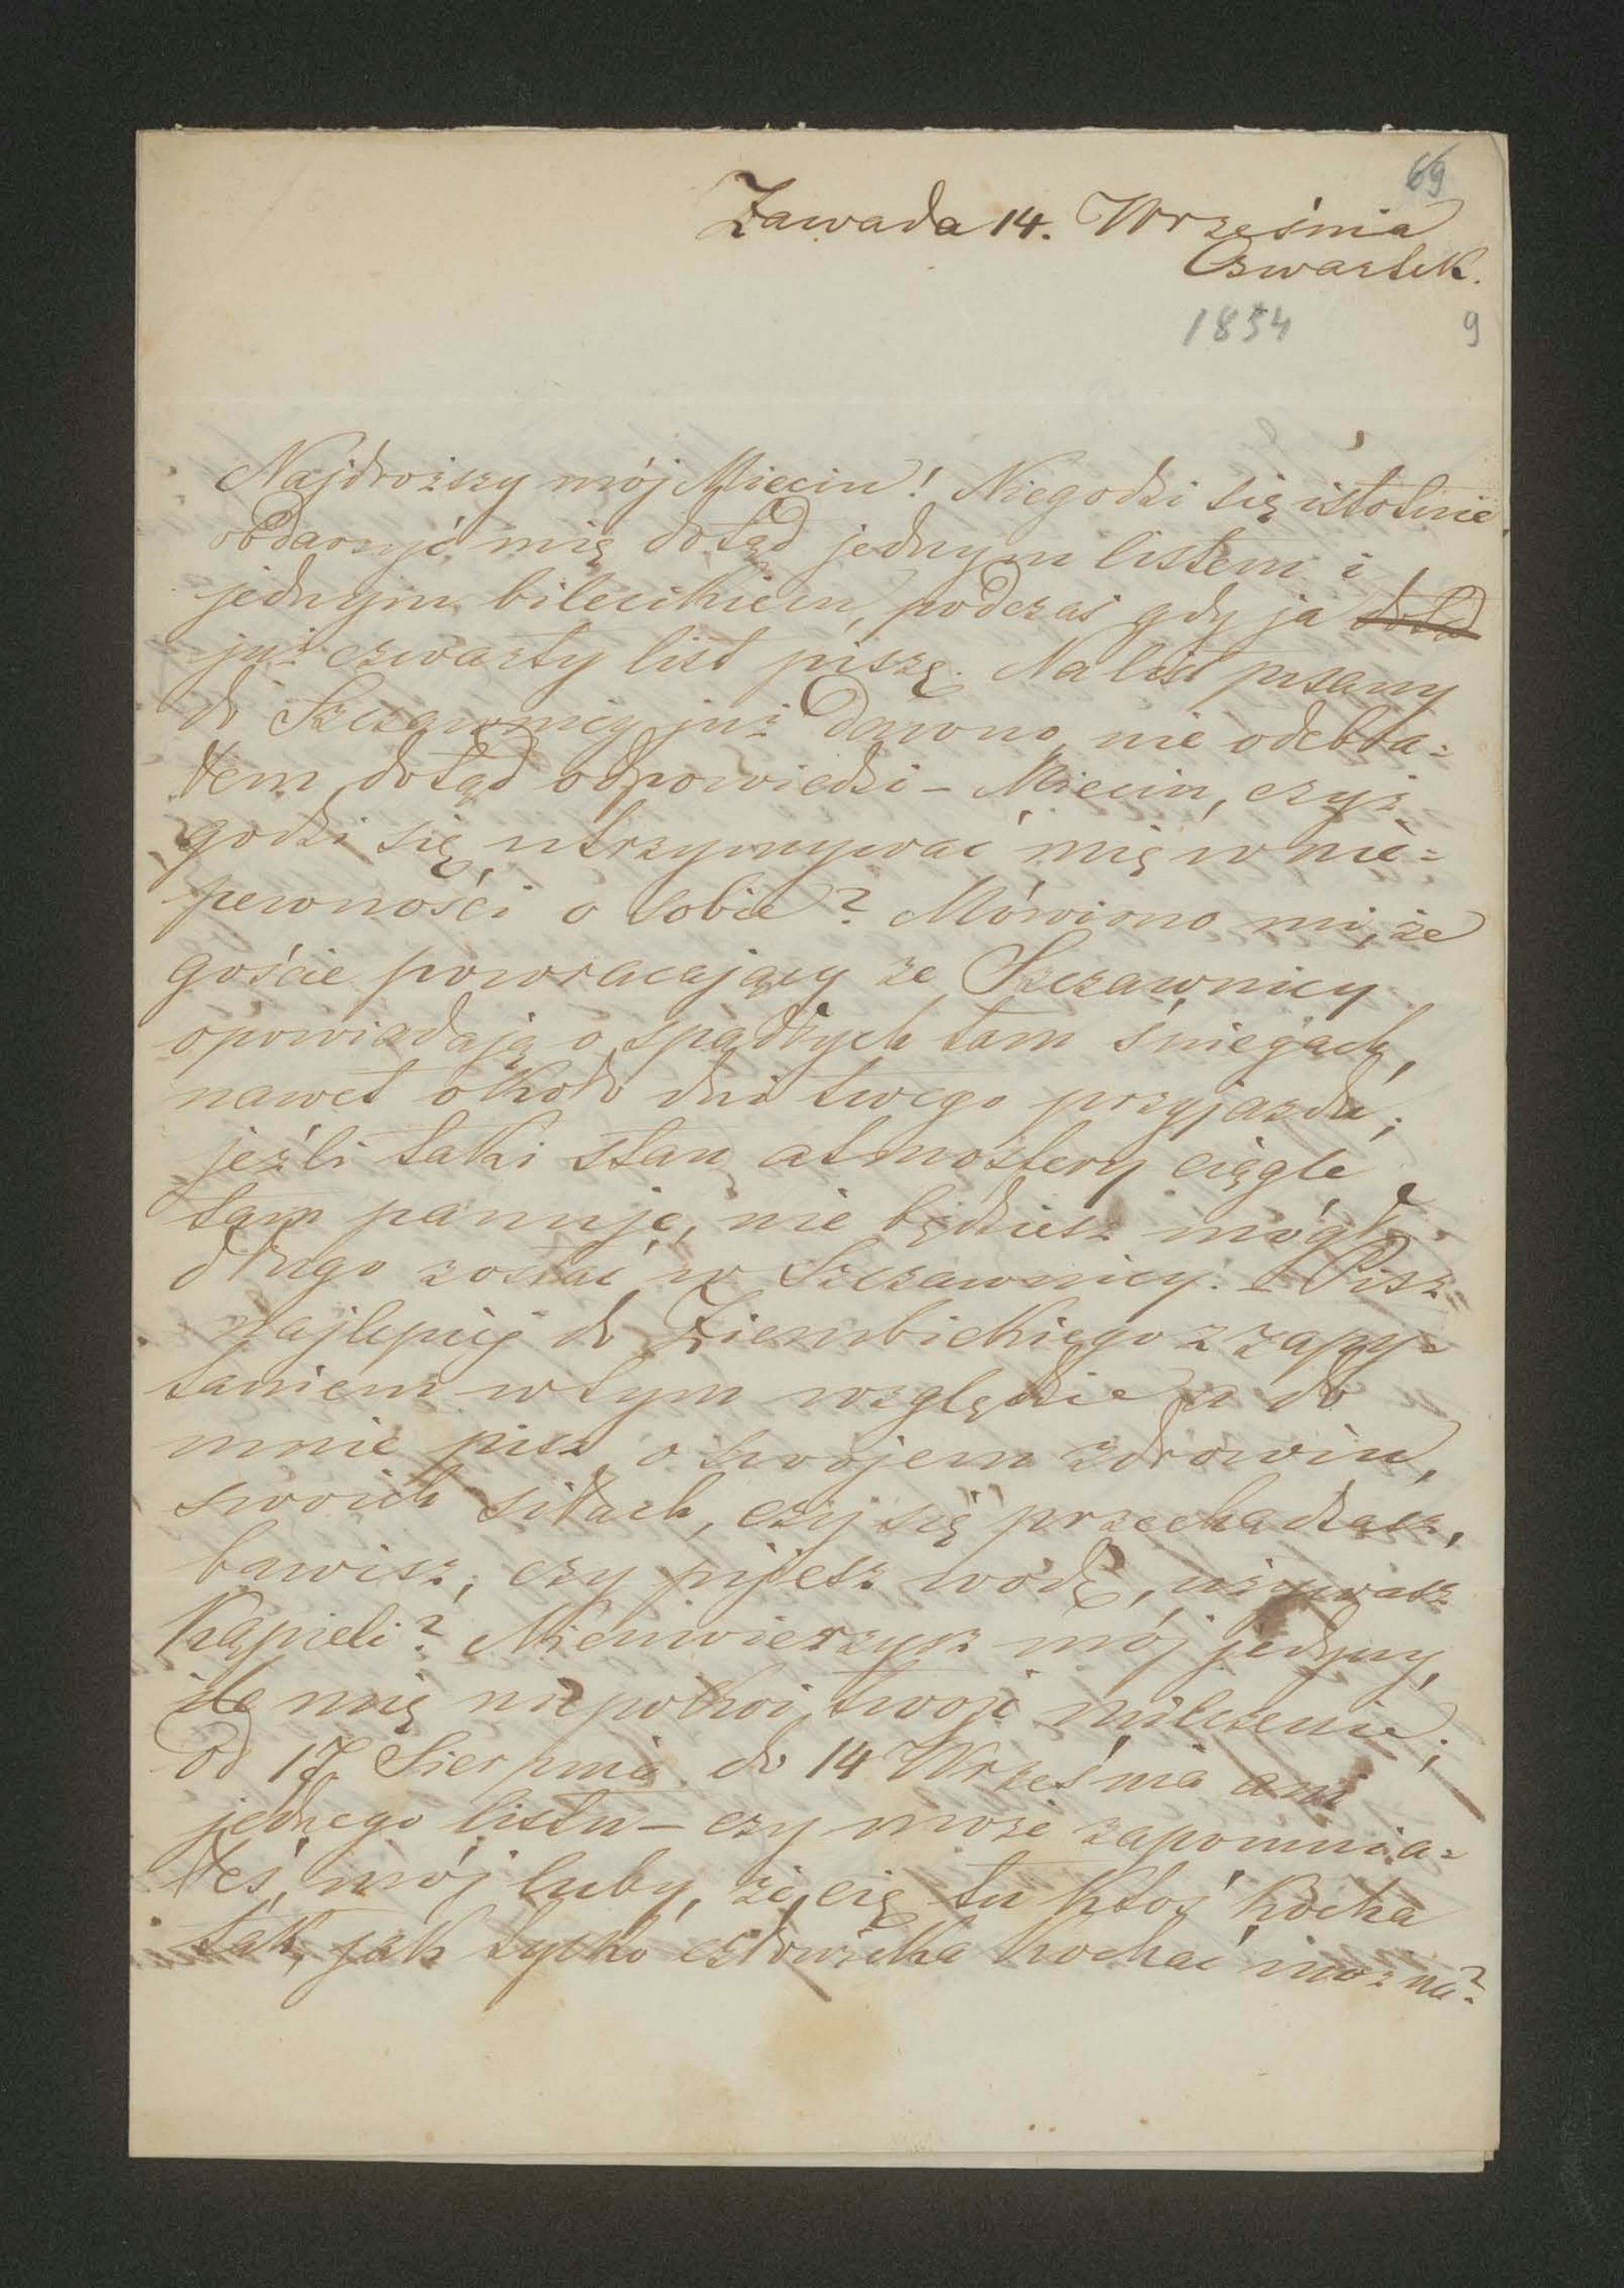 69
Zawada 14. Września
Czwartek.
1854 9
Najdroższy mój Mieciu! Niegodzi się istotnie
obdarzyć mię dotąd jednym listem i
jednym bilecikiem, podczas gdy ja dotąd
już czwarty list piszę. Na list pisany
do Szczawnicy już dawno nie odebra=
łem dotąd odpowiedzi – Mieciu, czyż
godzi się utrzymywać mię w nie=
pewności o sobie? Mówiono mi, że
goście powracający ze Szczawnicy
opowiadają o spadłych tam śniegach,
nawet około dni twego przyjazdu;
jeźli taki stan atmosfery ciągle
tam panuje, nie będziesz mógł
długo zostać w Szczawnicy. – Pisz
najlepiéj do Ziembickiego z zapy=
taniem w tym względzie a do
mnie pisz o swojem zdrowiu,
swoich siłach, czy się przechadzasz,
bawisz, czy pijesz wodę, używasz
kąpieli? Nieuwierzysz mój jedyny,
ile mię niepokoi twoje milczenie;
od 17 Sierpnia do 14 Września ani
jednego listu – czy może zapomnia=
łeś, mój luby, że cię tu ktoś kocha
tak, jak tylko człowieka kochać można?